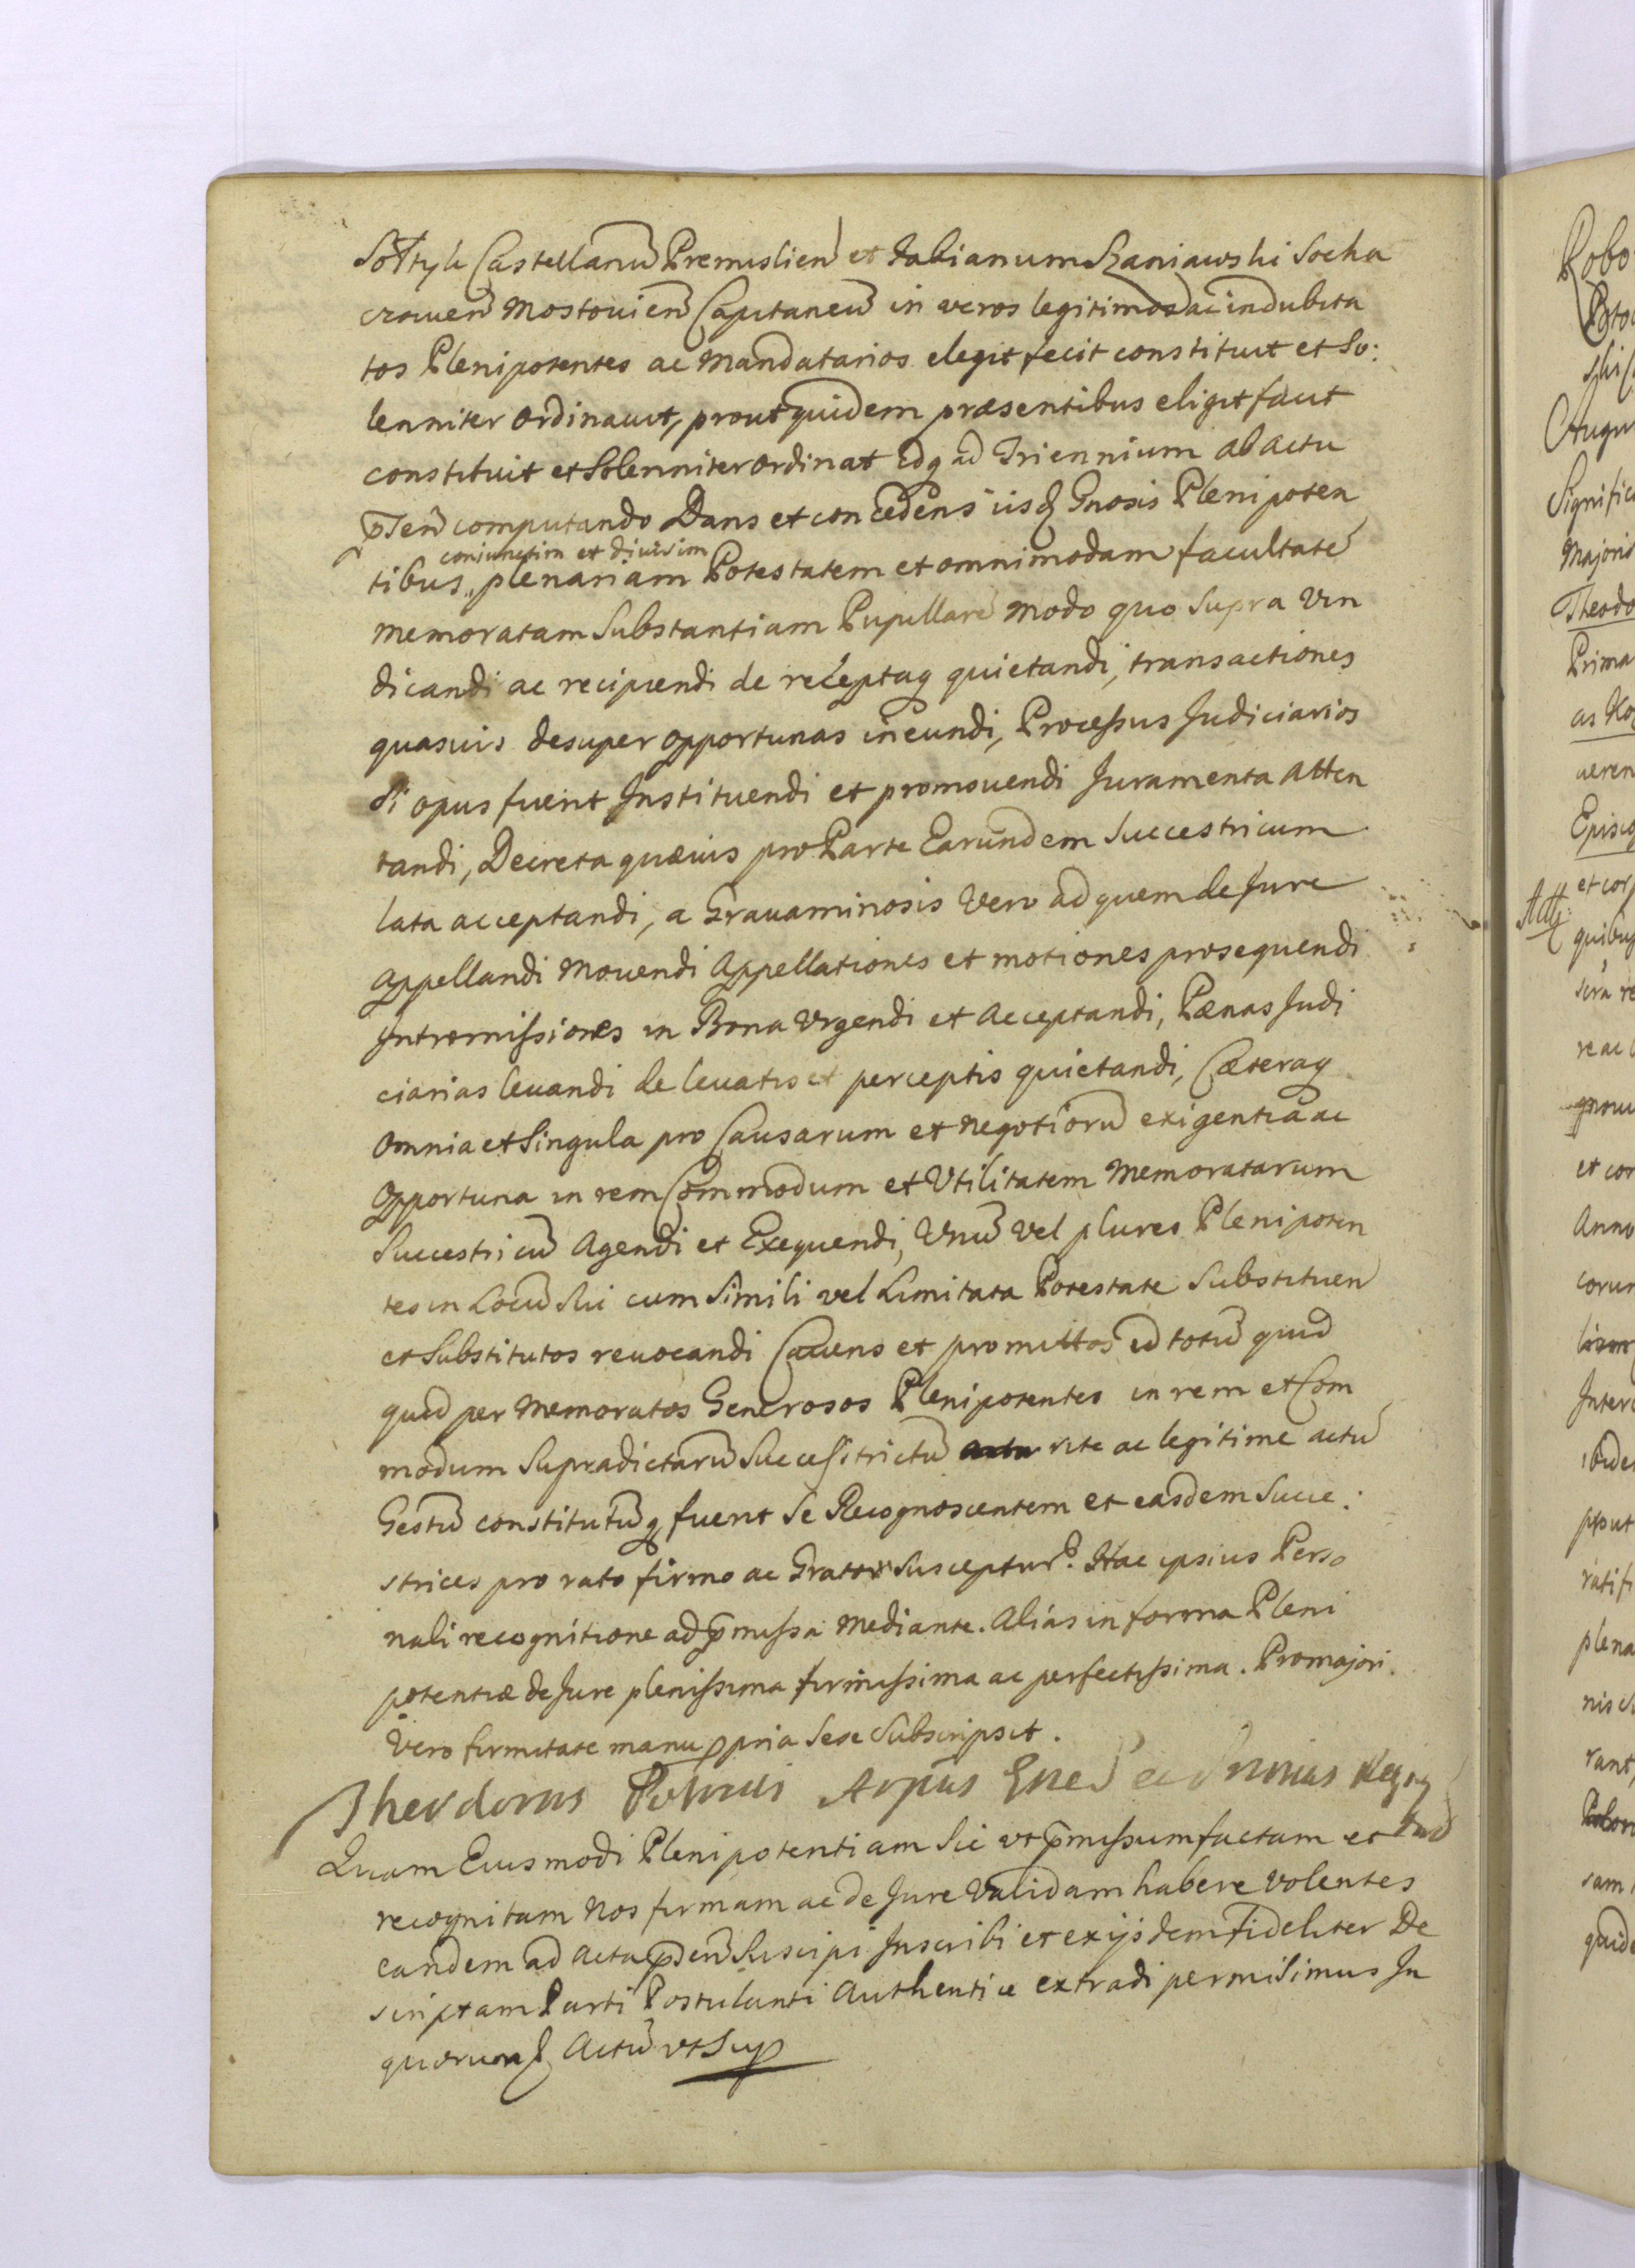 Sołtyk Castellanũ Premislieñ et Fabianum Szaniawski Socha
czouieñ Mostouieñ Capitaneũ in veros legitimos ac indubita
tos Plenipotentes ac Mandatarios elegit fecit constituit et So:
lenniter ordinauit, prout quidem præsentibus eligit facit
constituit et Solenniter ordinat idq ad Triennium ab actu
pñteñ computando Dans et concedens iisđ Gnosis Plenipoten
coniunctim et divisim
tibus,, plenariam Potestatem et omnimodam facultatẽ
memoratam Substantiam Pupillarẽ modo quo Supra Vin
dicandi ac recipiendi de receptaq quietandi, transactiones
quasuis desuper opportunas ineundi, Processus Judiciarios
Si opus fuerit Instituendi et promouendi Juramenta Atten
tandi, Decreta quæuis pro Parte Earundem Succestricum
lata acceptandi, a Grauaminosis Vero ad quem de Jure
Appellandi Mouendi Appellationes et motiones prosequendi
Intromissiones in Bona Vrgendi et Acceptandi, Pænas Judi
ciarias leuandi de leuatis et perceptis quietandi, Cæteraq
Omnia et Singula pro Causarum et negotiorũ exigentia ac
Opportuna in rem Commodum et Vtilitatem Memoratarum
Succestricũ Agendi et Exequendi, Vnũ vel plures Plenipoten
tes in Locũ Sui cum Simili vel Limitata Potestate Substituen
et Substitutos reuocandi Cauens et promittos id totũ quid
quid per Memoratos Generosos Plenipotentes in rem et Com
modum Supradictarũ Successtrictũ rite ac legitime actũ
Gestũ constitutũq fuerit Se Recognoscentem et easdem Succe:
strices pro rato firmo ac Grato Suscepturũ. Hac ipsius Perso
nali recognitione ad pmissa Mediante. Alias in forma Pleni
potentiæ de Jure plenissima firmissima ac perfectissima. Pro majori
Vero firmitate manu ppria Sese Subscripsit.
Theodorus Potocki Arpus Gnes
Quam Eiusmodi Plenipotentiam Sic vt pmissum factam et
recognitam Nos firmam ac de Jure Validam habere Volentes
eandem ad Acta pñsen Suscipi Inscribi et ex ijsdem Fideliter De
scriptam Parti Postulanti Authentice extradi permisimus In
quorum Actũ vt Sup